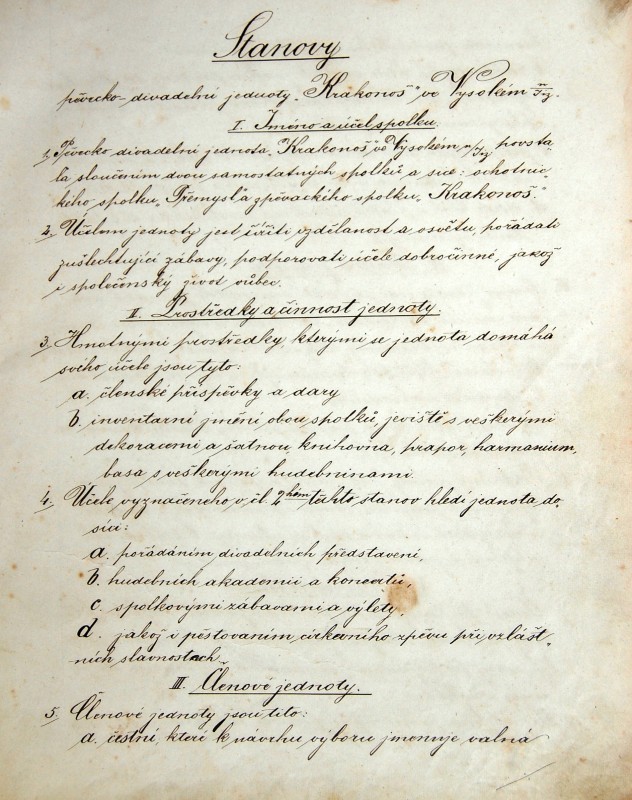 Stanovy
pěvecko-divadelní jednoty „Krakonoš“ ve Vysokém n/J.
I. Jméno a účel spolku.
1. Pěvecko divadelní jednota „Krakonoš“ ve Vysokém n/J. povsta-
la sloučením dvou samostatných spolků a sice: ochotnic-
kého spolku „Přemysl“ a zpěváckého spolku „Krakonoš.“
2. Účelem jednoty jest, šířiti vzdělanost a osvětu, pořádati
zušlechťující zábavy, podporovati účele dobročinné, jakož
i společenský život vůbec.
II. Prostředky a činnost jednoty.
3. Hmotnými prostředky, kterými se jednota domáhá
svého účele jsou tyto:
a. členské příspěvky a dary
b. inventární jmění obou spolků, jeviště s veškerými
dekoracemi a šatnou, knihovna, prapor, harmonium,
basa s veškerými hudebninami.
4. Účele vyznačeného v čl. 2hém těchto stanov hledí jednota do-
síci:
a. pořádáním divadelních představení,
b. hudebních akademií a koncertů,
c. spolkovými zábavami a výlety,
d. jakož i pěstováním církevního zpěvu při vzlášt-
ních slavnostech.
III. Členové jednoty.
5. Členové jednoty jsou tito:
a. čestní, které k návrhu výboru jmenuje valná